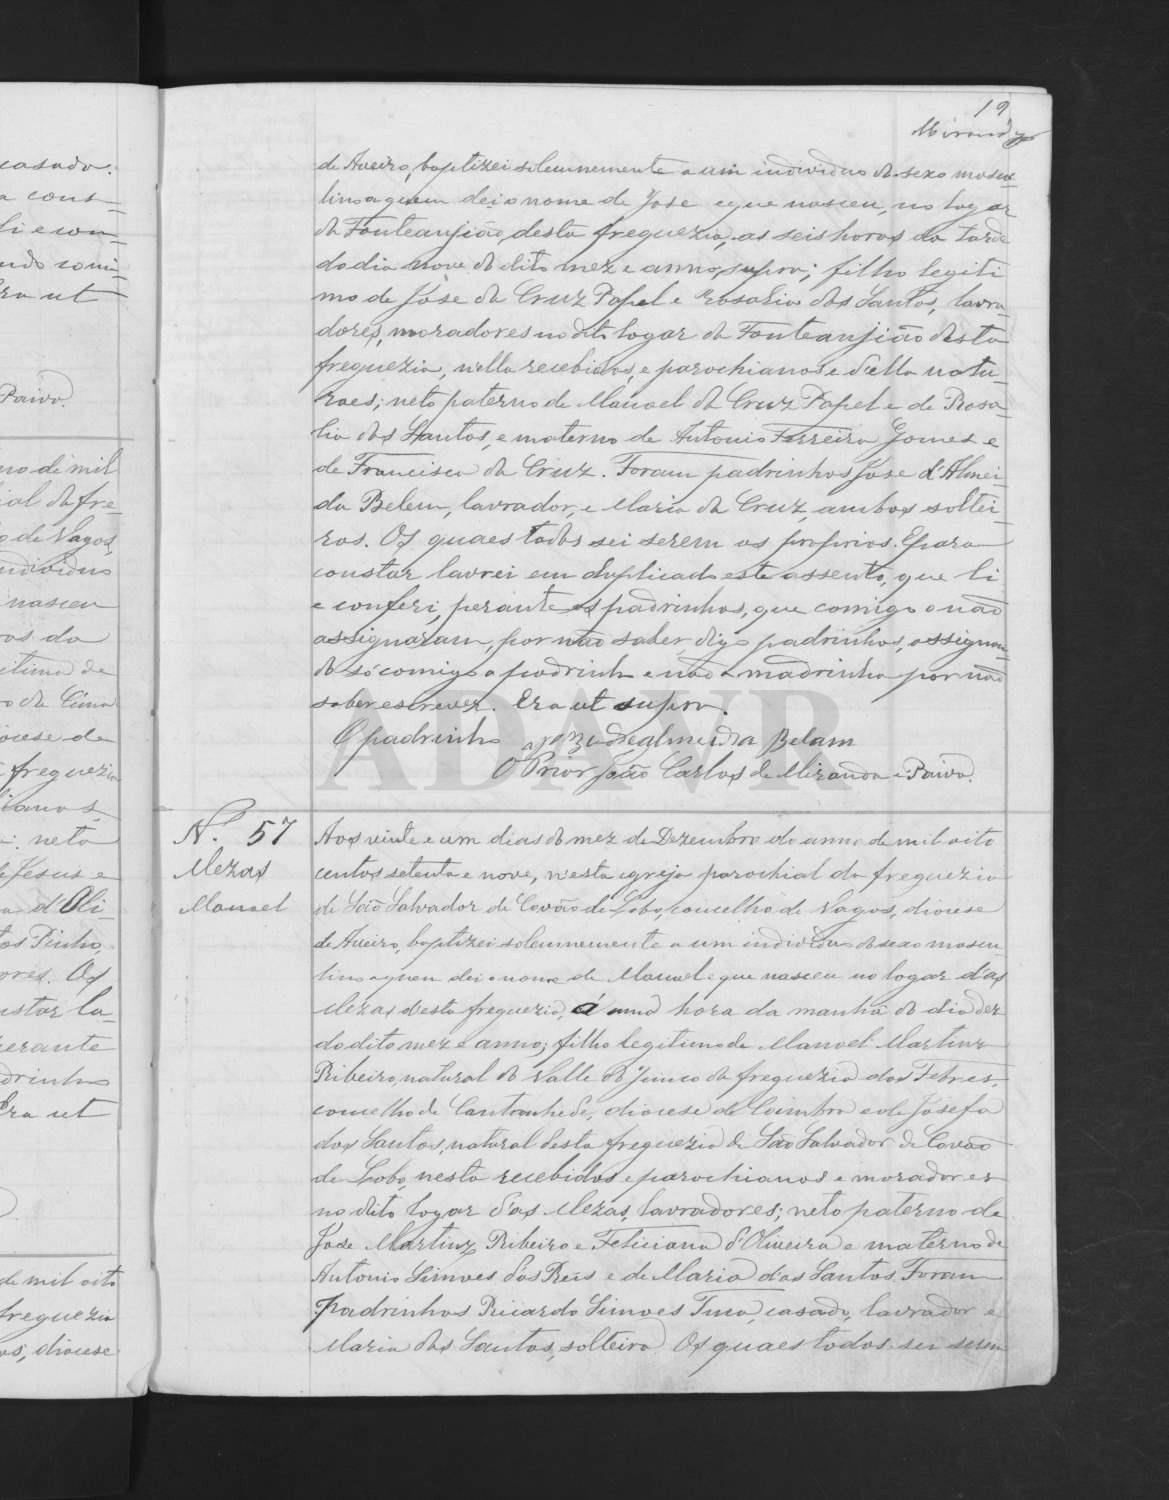 casado.
a cons-
li e con-
Era ut
Paiva.
no de mil
ial da fre-
de Vagos,
individuo
nasceu
ras da
itima de
da Cima
ocese de
freguezia
neto
de Jesus e
d'Oli-
tos Pinho,
ores. Os
nstar la-
perante
drinho
Era ut
de mil oito
freguezia
os, diocese
19
Miranda
de Aveiro, baptizei solemnemente a um individuo do sexo mascu-
lino a quem dei o nome de José e que nasceu, no logar
da Fonteanjião, desta freguezia, as seis horas da tarde
do dia nove do dito mez e anno, supra; filho legiti
mo de José da Cruz Papel e Rosalia dos Santos, lavra-
dores, moradores no dito logar da Fonteanjião desta
freguezia, n'ella recebidos, e parochianos e d'ella natu-
raes; neto paterno de Manoel da Cruz Papel e de Rosa-
lia dos Santos, e materno de Antonio Ferreira Gomes e
de Francisca da Cruz. Foram padrinhos José d'Almei-
da Belem, lavrador, e Maria da Cruz, ambos soltei-
ros. Os quaes todos sei serem os proprios. E para
constar lavrei em duplicado este assento, que li
e conferi, perante os padrinhos, que comigo o não
assignaram, por não saber, digo padrinhos, assignan-
do só comigo o padrinho e não a madrinha por não
saber escrever. Era ut supra.
O padrinho José de Almeida Belam
O Prior João Carlos de Miranda e Paiva.
N.º 57
Mezas
Manoel
Aos vinte e um dias do mez de Dezembro do anno de mil oito
centos setenta e nove, n'esta egreja parochial da freguezia
de São Salvador de Covão do Lobo, concelho de Vagos, diocese
de Aveiro, baptizei solemnemente a um individuo do sexo mascu-
lino a quem dei o nome de Manoel e que nasceu no logar d'as
Mezas desta freguezia, á uma hora da manhã do dia dez
do dito mez e anno; filho legitimo de Manoel Martins
Ribeiro, natural do Valle do Junco da freguezia dos Febres,
concelho de Cantanhede, diocese de Coimbra e de Josefa
dos Santos, natural desta freguezia de São Salvador de Covão
do Lobo, nesta recebidos e parochianos e moradores
no dito logar d'as Mezas, lavradores; neto paterno de
José Martins Ribeiro e Feliciana d'Oliveira e materno de
Antonio Simoes dos Reis e de Maria dos Santos. Foram
padrinhos Ricardo Simoes casado, lavrador e
Maria dos Santos, solteira. Os quaes todos sei serem
ADAVR